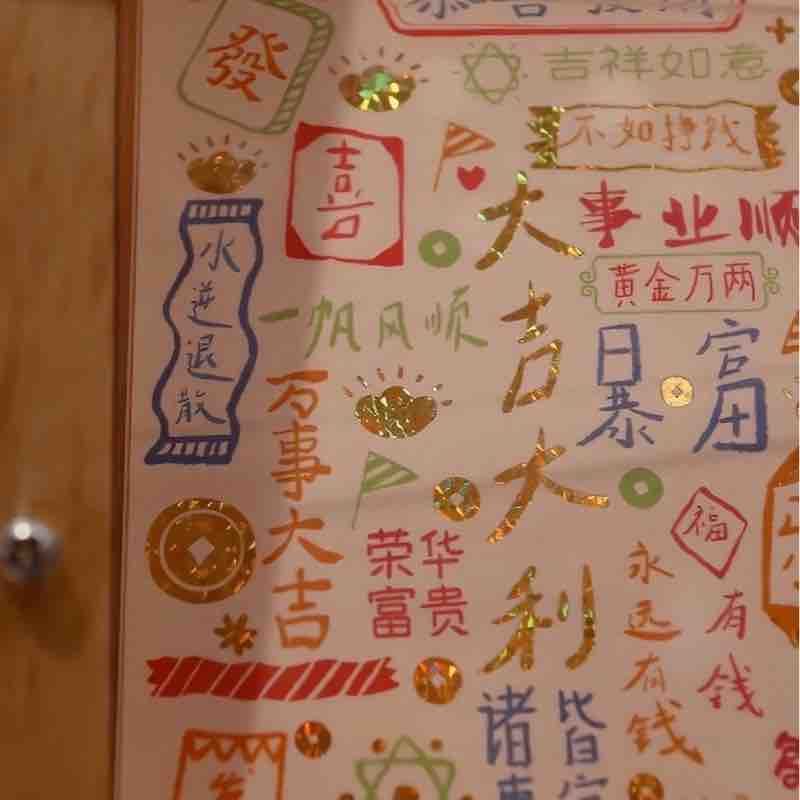 恭喜發財
發
吉祥如意
不如挣钱
喜
大吉大利
事业顺
黄金万两
水逆退散
一帆风顺
日暴
富
万事大吉
荣华
富贵
福
永远有钱
有钱
诸事
皆宜
发